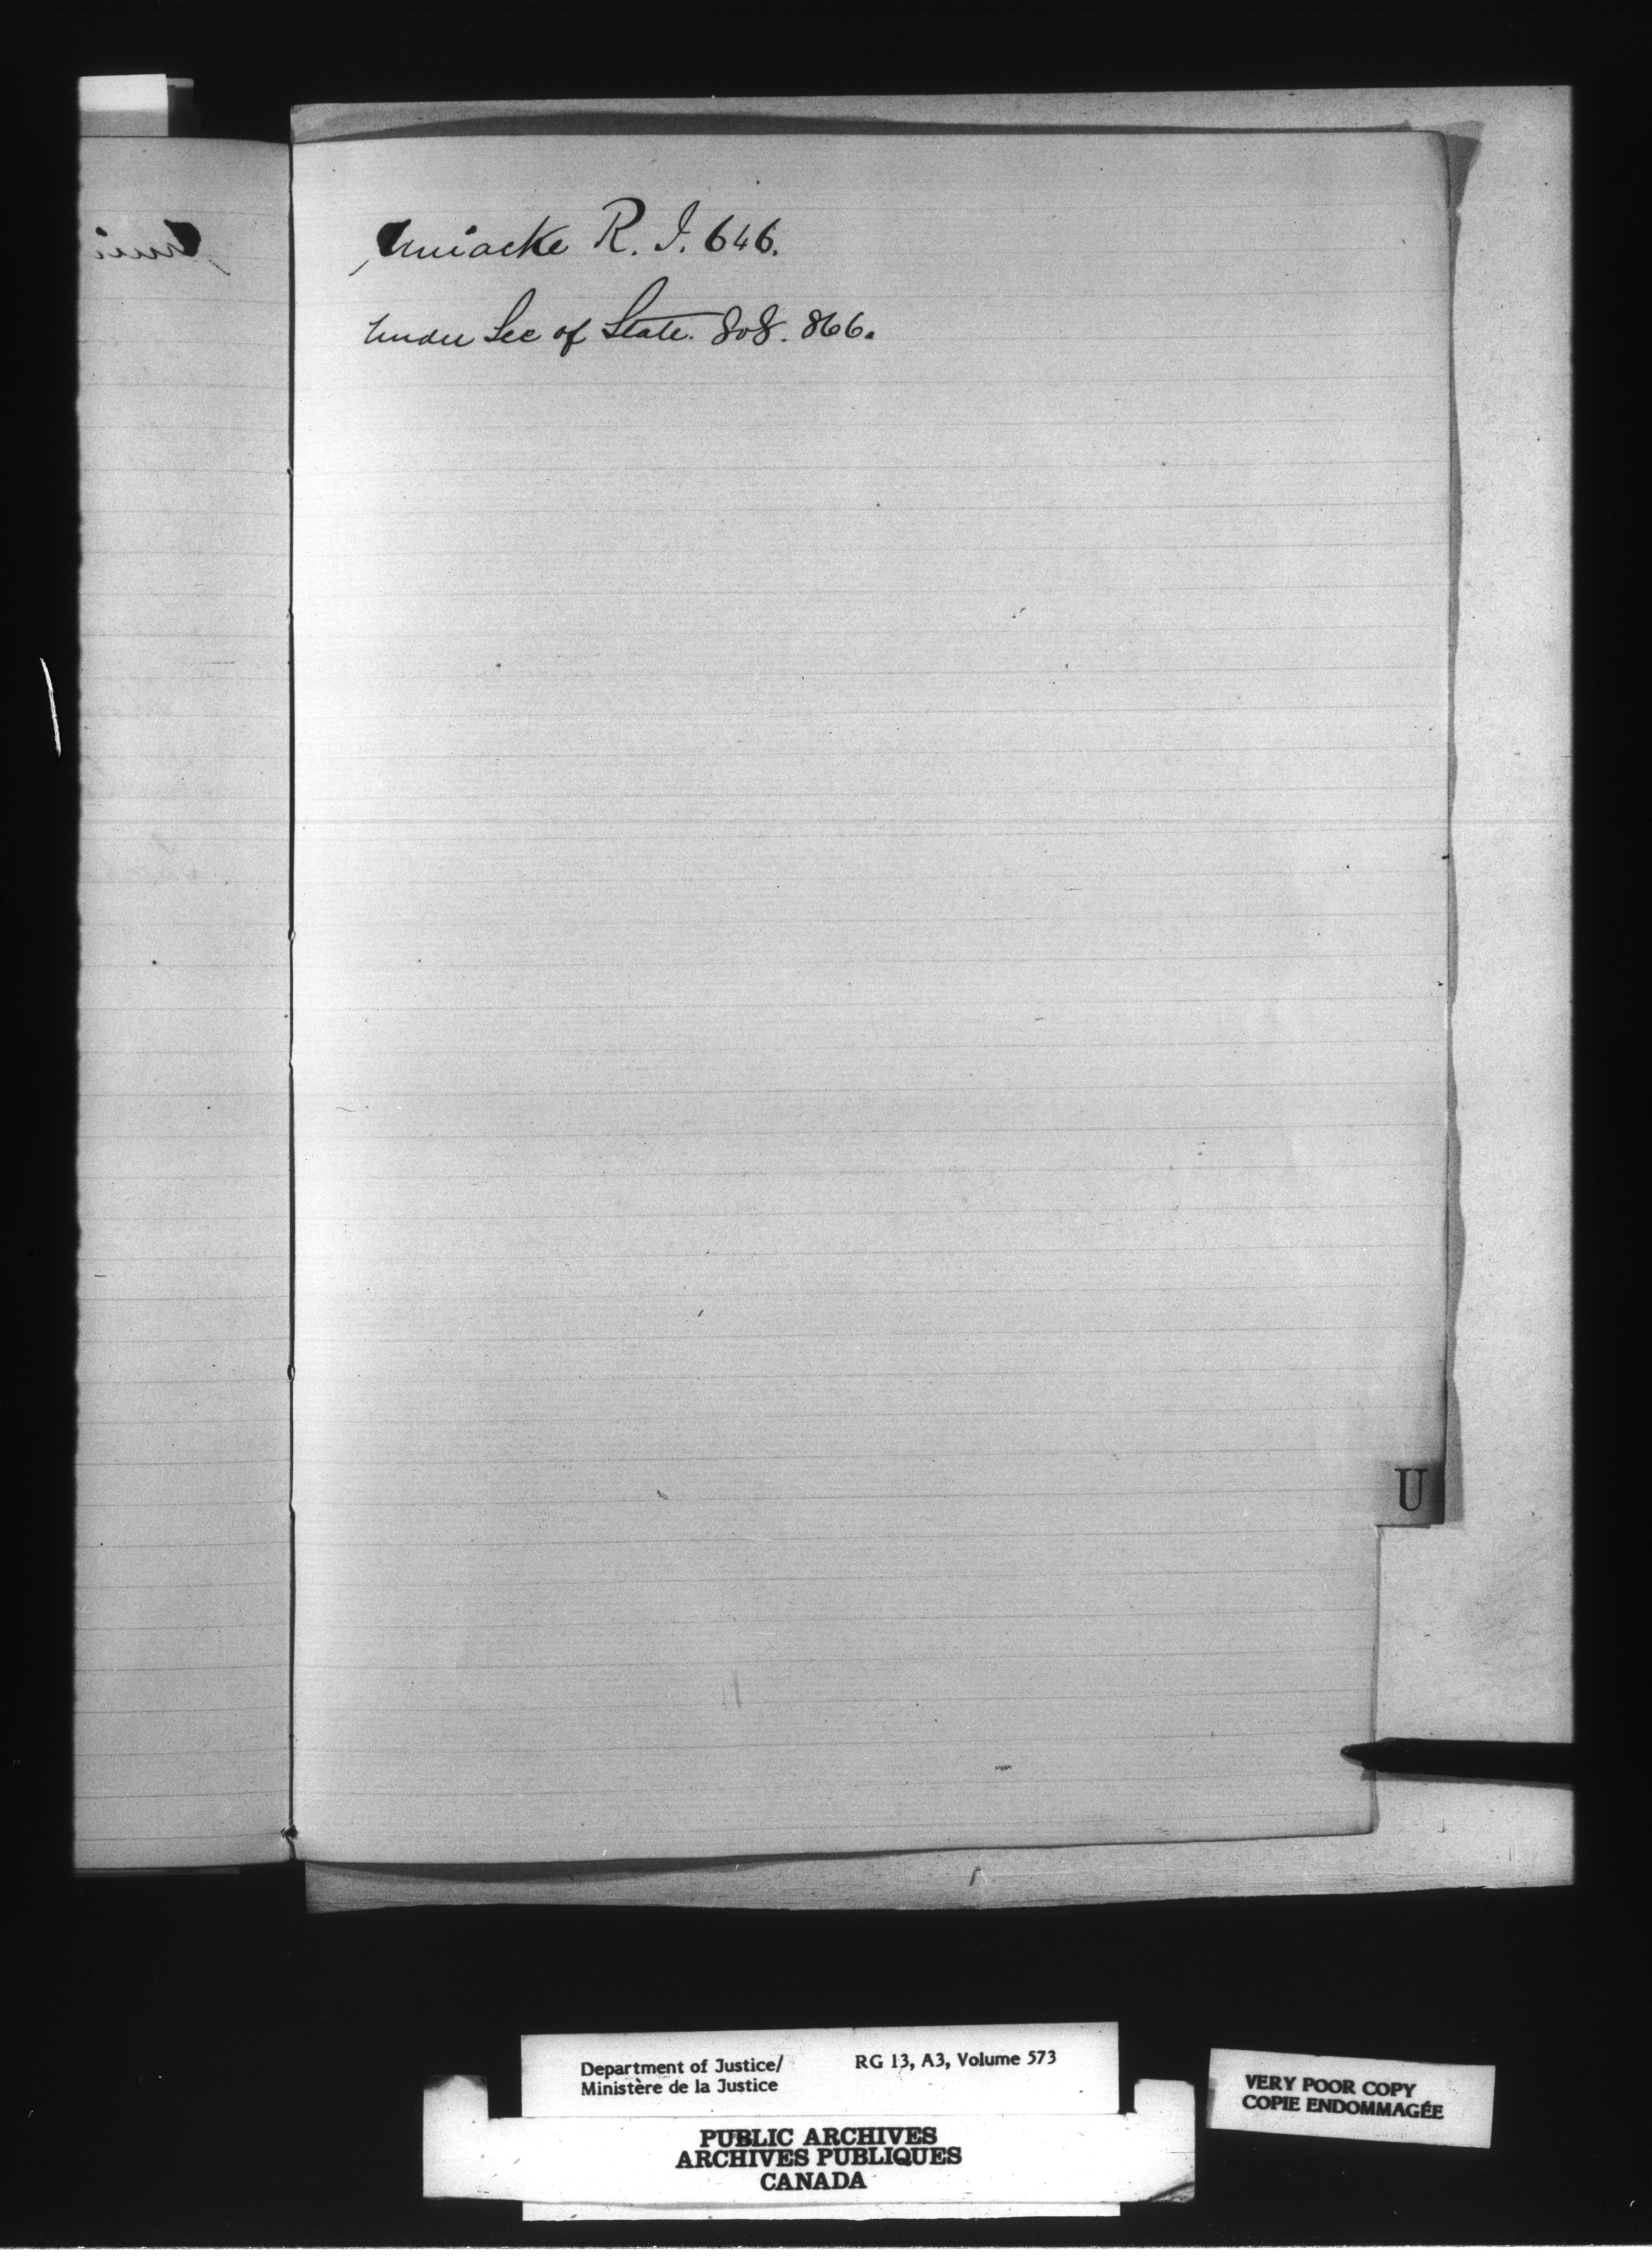 Uniacke R. J. 646.
Under Sec of State. 808. 866.
U
Department of Justice/
Ministère de la Justice
RG 13, A3, Volume 573
PUBLIC ARCHIVES
ARCHIVES PUBLIQUES
CANADA
VERY POOR COPY
COPIE ENDOMMAGÉE